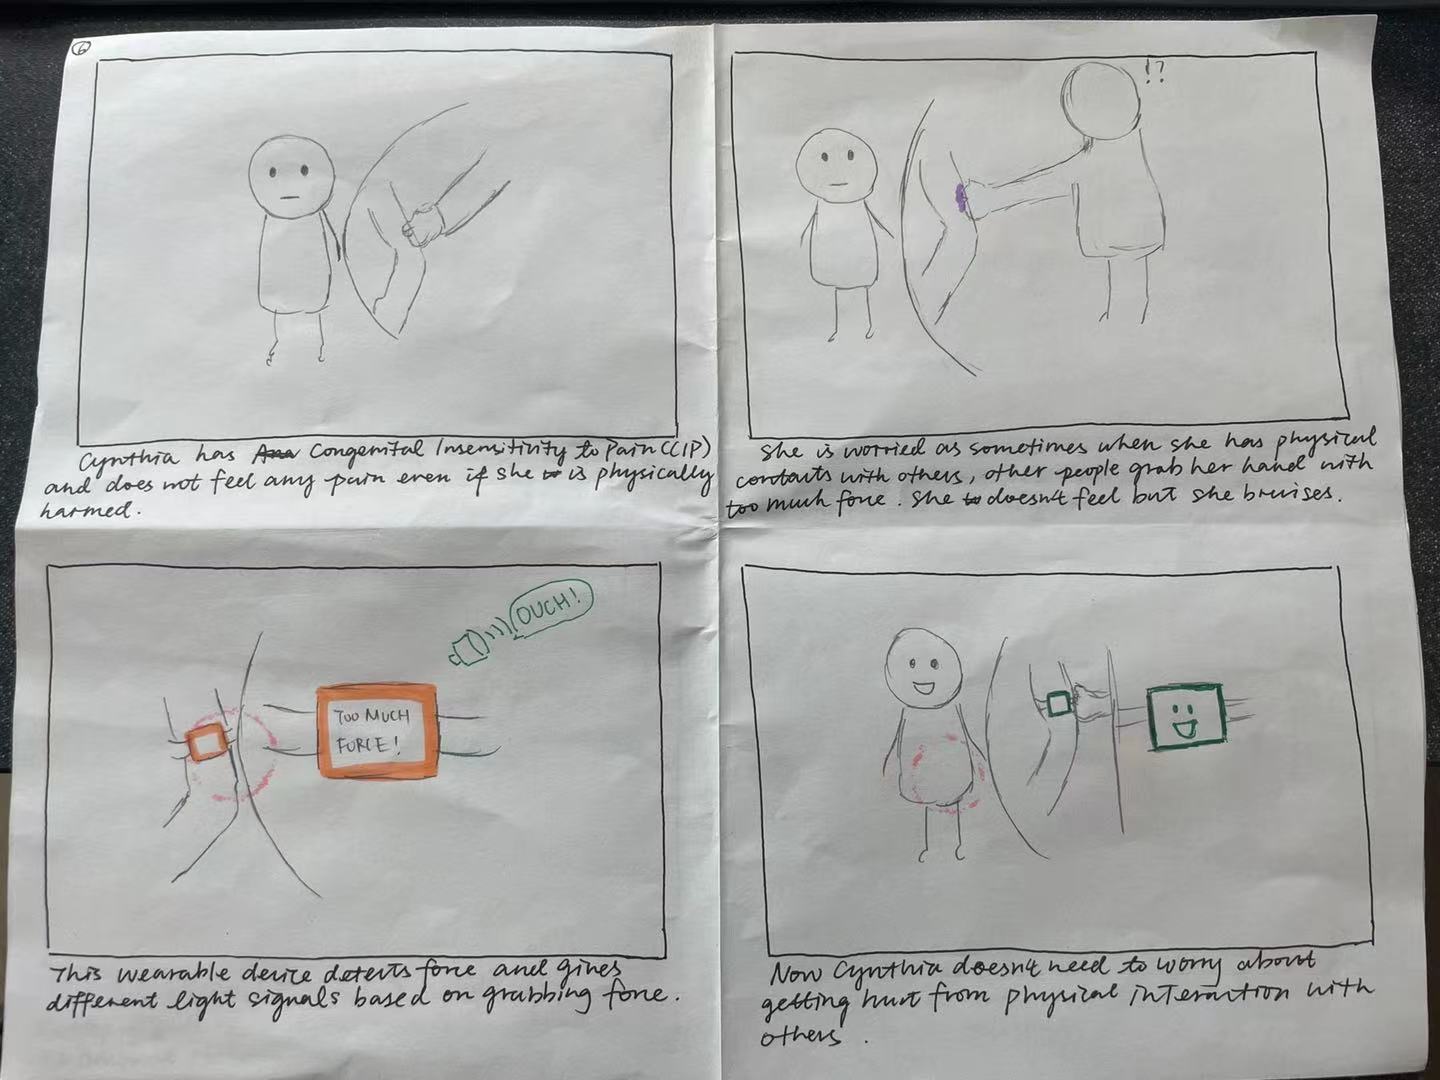 6
!?
Cynthia has Ana Congenital Insensitivity to Pain (CIP)
and does not feel any pain even if she is physically
harmed.
She is worried as sometimes when she has physical
contacts with others, other people grab her hand with
too much force. She doesn't feel but she bruises.
OUCH!
TOO MUCH
FORCE!
This wearable device detects force and gives
different light signals based on grabbing force.
Now Cynthia doesn't need to worry about
getting hurt from physical interaction with
others.